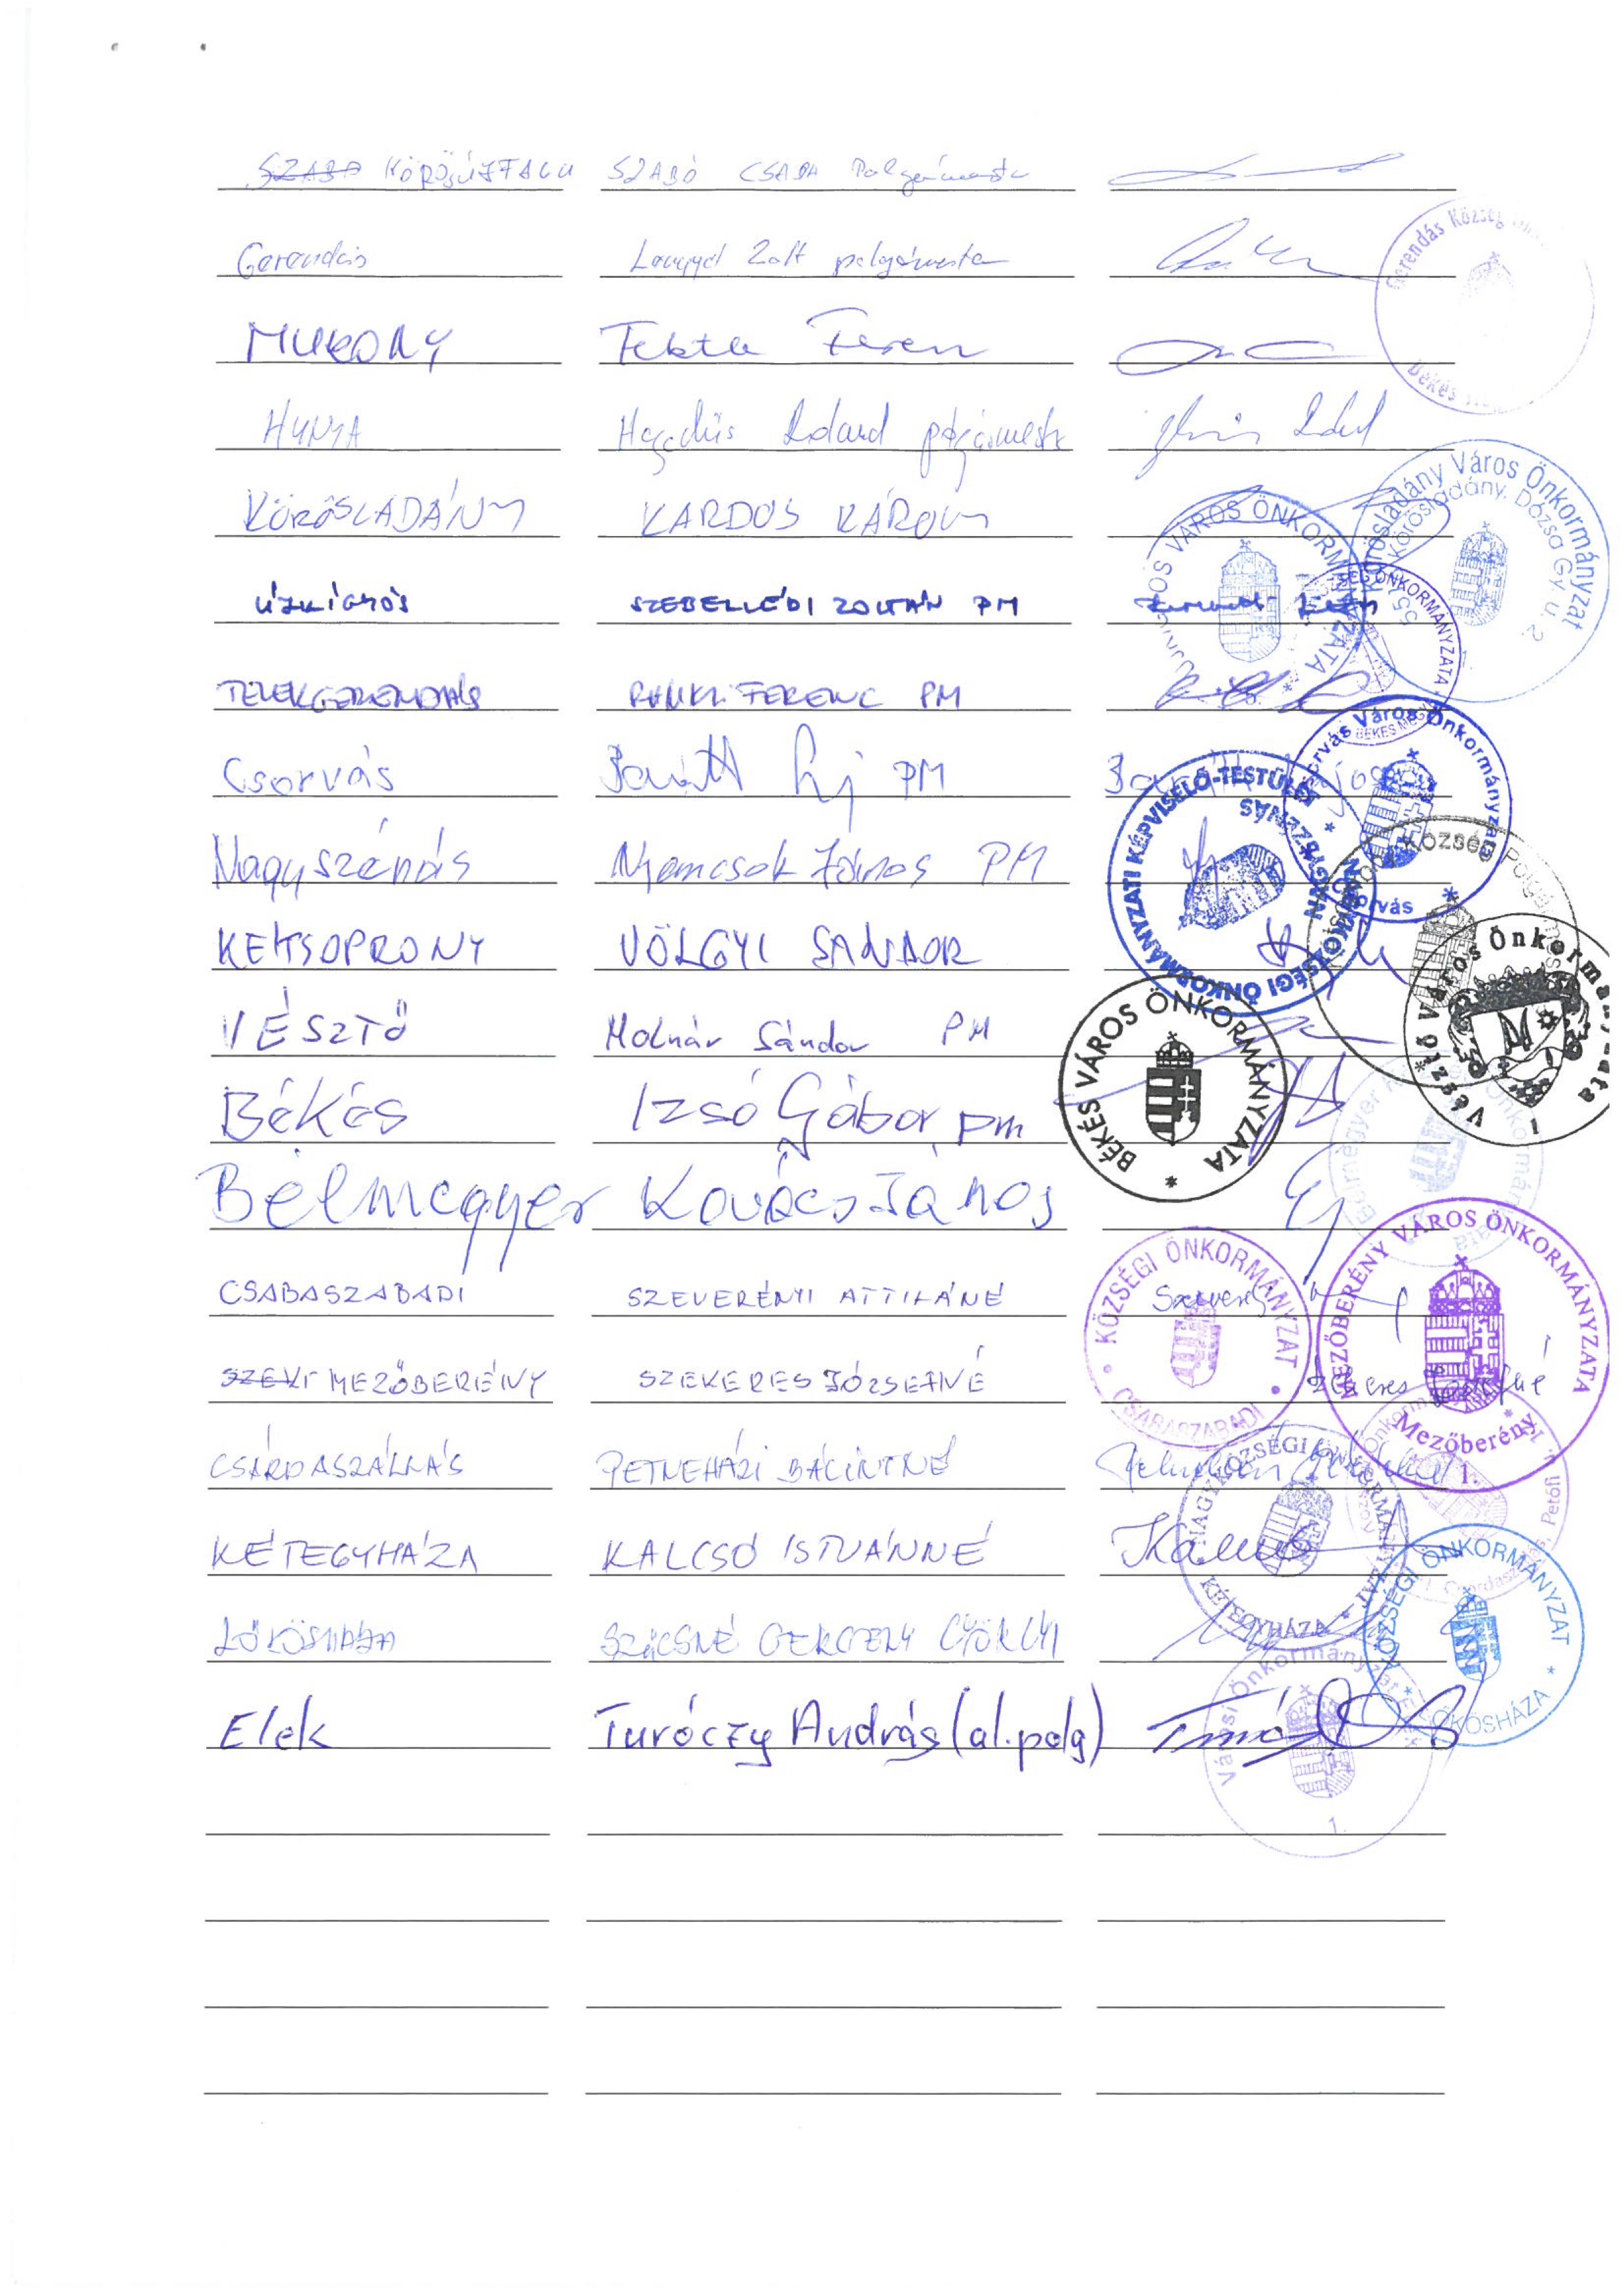 SZABO KÖRÖSÚJFALU SZABÓ CSABA Polgármester
Gerendás Lengyel Zsolt polgármester
Gerendás Község
Békés
MURONY Fekete Ferenc
HUNYA Hegedüs Roland polgármester
KÖRÖSLADÁNY KARDOS KÁROLY
Körösladány Város Önkormányzat
Körösladány, Dózsa Gy. u. 2.
VÁROS ÖNKORMÁNYZATA
ÚJKÍGYÓS SZEBELLÉDI ZOLTÁN PM
TELEKGERENDÁS FERENC PM
ÖNKORMÁNYZATA
Csorvás Baráth PM
Csorvás Város Önkormányzata
Csorvás
Nagyszénás Nyemcsok János PM
NAGYKÖZSÉGI ÖNKORMÁNYZATI KÉPVISELŐ-TESTÜLET
NAGYSZÉNÁS
KÉTSOPRONY VÖLGYI SÁNDOR
Község
VÉSZTŐ Molnár Sándor PM
Vésztő Város Önkormányzata
Békés Izsó Gábor, pm
BÉKÉS VÁROS ÖNKORMÁNYZATA
Bélmegyer Kovács János
CSABASZABADI SZEVERÉNYI ATTILÁNÉ
KÖZSÉGI ÖNKORMÁNYZAT
CSABASZABADI
MEZŐBERÉNY SZEKERES JÓZSEFNÉ Szekeres Józsefné
MEZŐBERÉNY VÁROS ÖNKORMÁNYZATA
Mezőberény
1.
CSÁRDASZÁLLÁS PETNEHÁZI BÁLINTNÉ
KÉTEGYHÁZA KALCSÓ ISTVÁNNÉ
NAGYKÖZSÉGI ÖNKORMÁNYZAT
KÉTEGYHÁZA
LŐKÖSHÁZA SZŰCSNÉ GERGELY GYÖRGYI
KÖZSÉGI ÖNKORMÁNYZAT
LŐKÖSHÁZA
Elek Turóczy András (al.polg)
Városi Önkormányzat Elek
1.